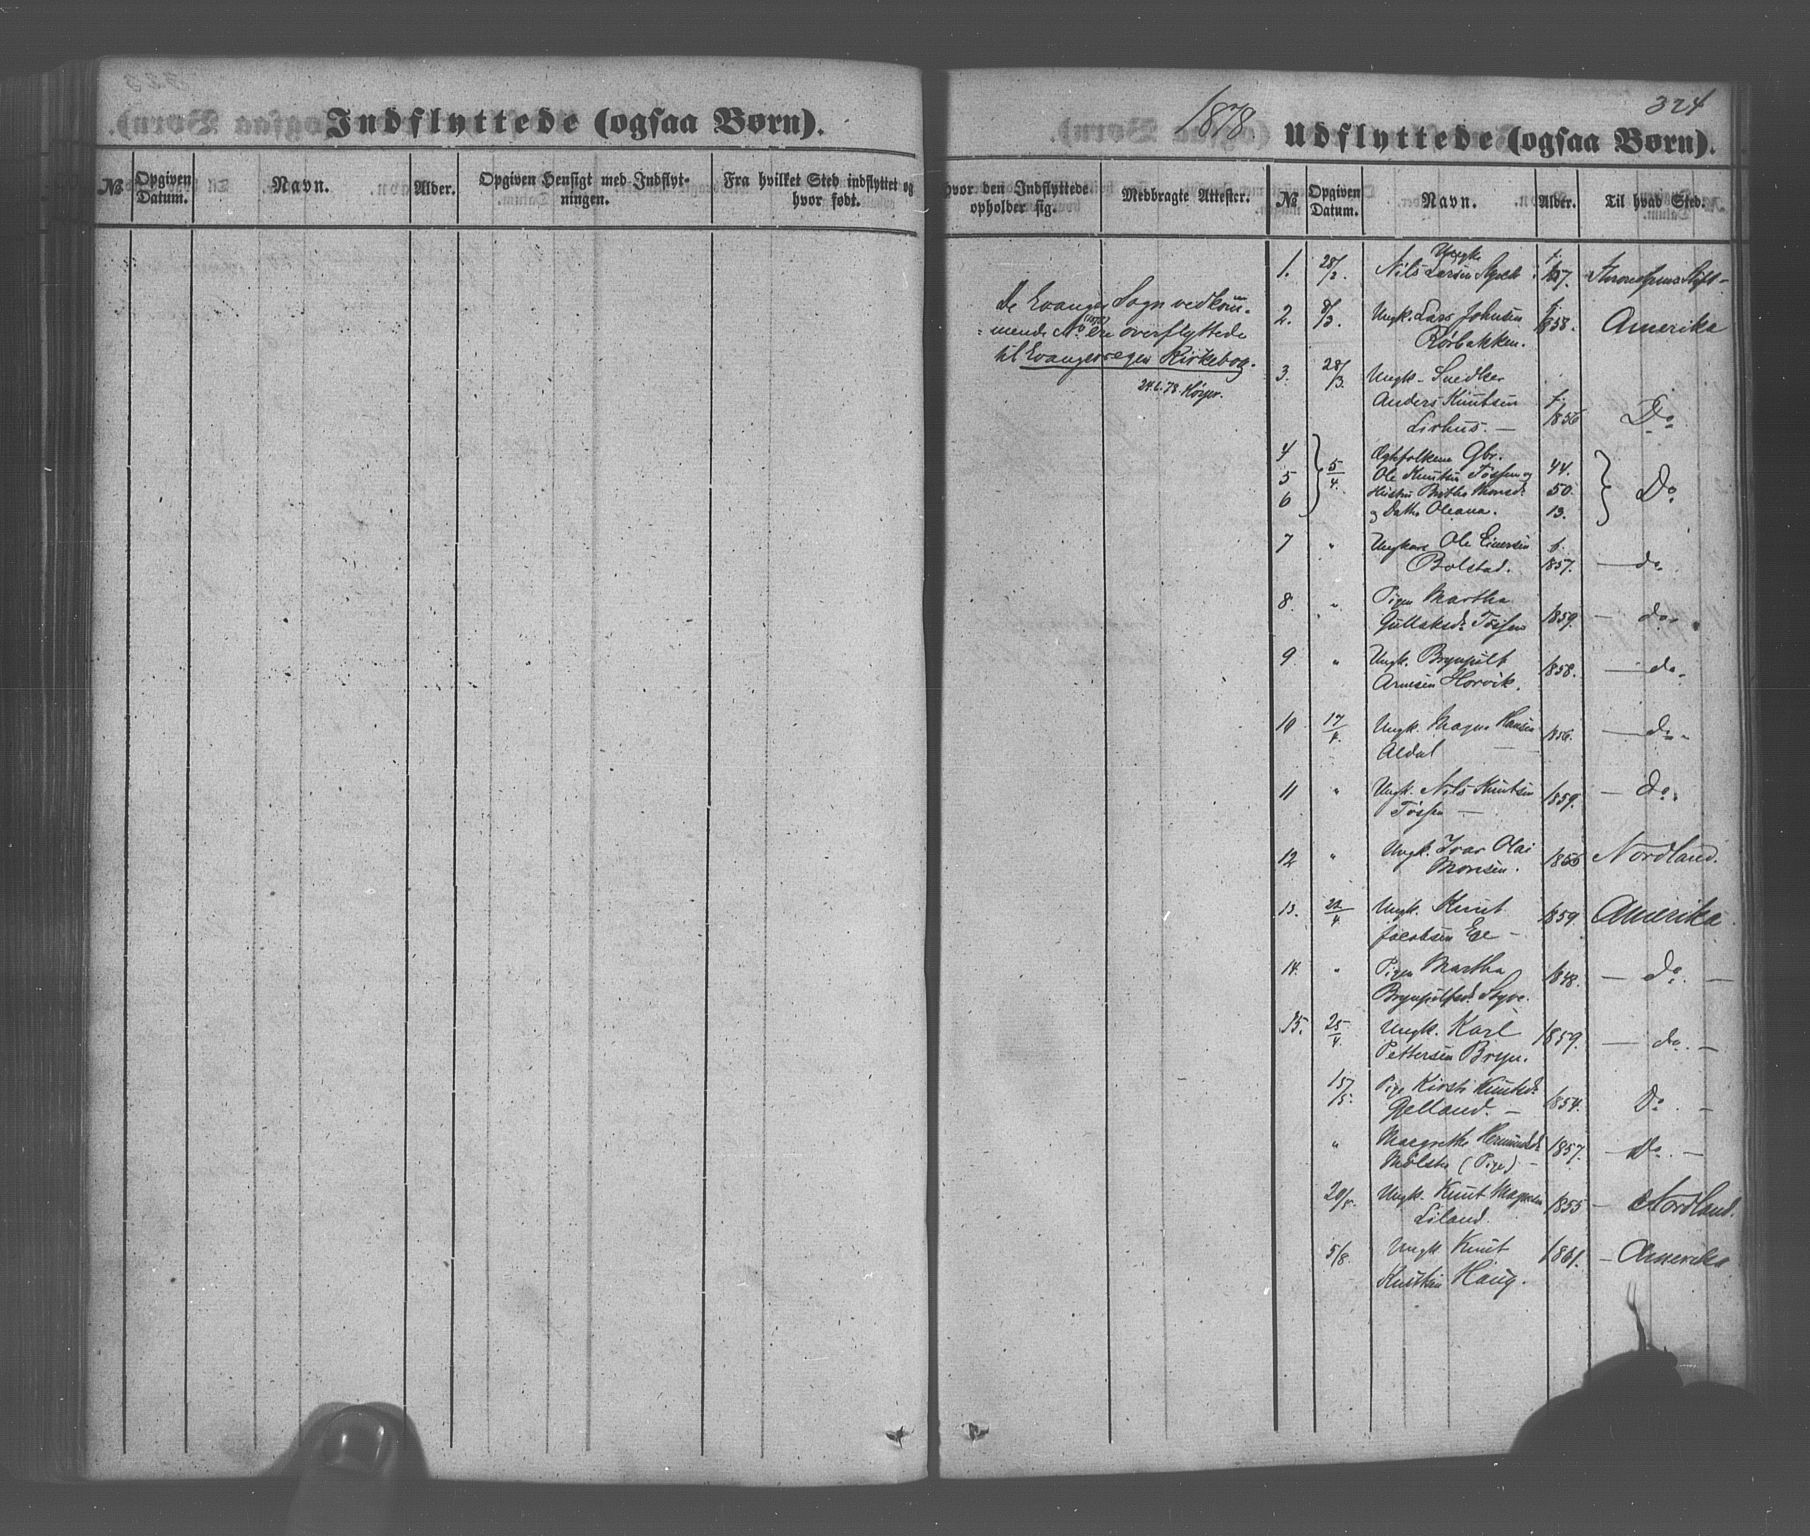 Indflyttede (ogsaa Børn).
№
Opgiven Datum.
Navn.
Alder.
Opgiven Hensigt med Indflyt-
ningen.
Fra hvilket Sted indflyttet og
hvor født.
1878
324
Udflyttede (ogsaa Børn).
hvor den Indflyttede
opholder sig.
Medbragte Attester.
№
Opgiven Datum.
Navn.
Alder.
Til hvad Sted.
De Evanger Sogn vedkom-
mende No ere overflyttede
til Evangersogns Kirkebog.
1. 28/2. Ungk.
Nils Larsen f. 1857.
2. 8/3. Ungk. Lars Johnsen f. 1858. Amerika
Rørbakken.
3. 28/3. Ungk. Snedker
Anders Knutsen f. 1856 Do
Lirhus. —
4 Ægtefolkene Gbr. 44.
5 5/4. Ole Knutsen Tøssen og 50. Do
6 Hustru Brytha Monsd.
og Datter Oleana. 13.
7 " Ungkarl Ole Eiversen f. 1857. — do
Bolstad.
8. " Pigen Martha
Gullaksd. Tøssen 1859. — do.
9 " Ungk. Brynjulf
Arnesen Horvik. 1858. — do.
10 17/4. Ungk. Magne Hansen 1856. — do
Aldal
11 " Ungk. Nils Knutsen 1859. — do.
Tøssen —
12 " Ungk. Ivar Olai 1856 Nordland.
Monsen.
13. 22/4 Ungk. Knut 1859. Amerika.
Jacobsen Ege —
14. " Pigen Martha 1848. — do. —
Brynjulfsd. Styve.
15. 25/4. Ungk. Karl 1859. — do. —
Pettersen Bryn.
15/5. Pige Kirsti Knutsd. 1854. Do. —
Gelland. —
" Margrethe Hermundsd. 1857. — Do. —
Mølster (Pige) —
20/5. Ungk. Knut Magnesen 1855 — Nordland.
Liland.
5/8. Ungk Knut 1861. — Amerika
Knutsen Haug.